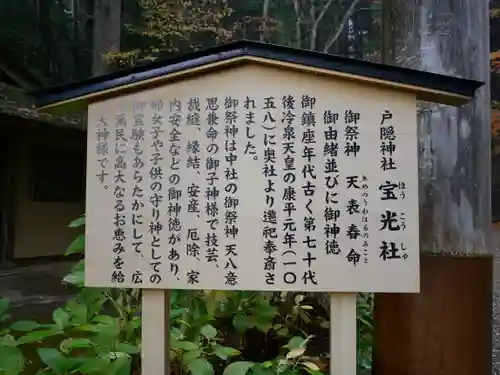 戸隠神社 宝光社
ほうこうしゃ
御祭神 天表春命
あめのうわはるのみこと
御由緒並びに御神徳
御鎮座年代古く第七十代
後冷泉天皇の康平元年(一〇
五八)に奥社より遷祀奉斎さ
れました。
御祭神は中社の御祭神天八意
思兼命の御子神様で技芸、
裁縫、縁結、安産、厄除、家
内安全などの御神徳があり、
婦女子や子供の守り神としての
御霊験もあらたかにして、広
く萬民に高大なるお恵みを給
う大神様です。